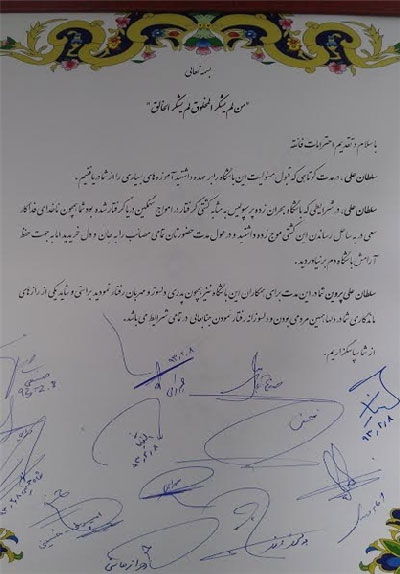 بسمه تعالی
"من لم یشکر المخلوق لم یشکر الخالق"
با سلام و تقدیم احترامات فائقه
سلطان علی، در مدت کوتاهی که قبول مسئولیت این باشگاه را بر عهده داشتید آموزه‌های بسیاری را از شما دریافتیم.
سلطان علی، در شرایطی که باشگاه بحران زده پرسپولیس به مثابه کشتی گرفتار در امواج سهمگین دریا گرفتار شده بود شما همچون ناخدای فداکار
سعی در به ساحل رساندن این کشتی موج زده داشتید و در طول مدت حضورتان تمامی مصائب را به جان و دل خریدید اما به جهت حفظ
آرامش باشگاه دم بر نیاوردید.
سلطان علی پروین شما در این مدت برای همکاران این باشگاه نیز همچون پدری دلسوز و مهربان رفتار نمودید براستی و شاید یکی از رازهای
ماندگاری شما در دلها همین مردمی بودن و دلسوزانه رفتار نمودن جنابعالی در تمامی شرایط می باشد.
از شما سپاسگزاریم.
۹۳,۲,۸
93-2-8
۹۳,۲,۸
۹۳,۲,۸